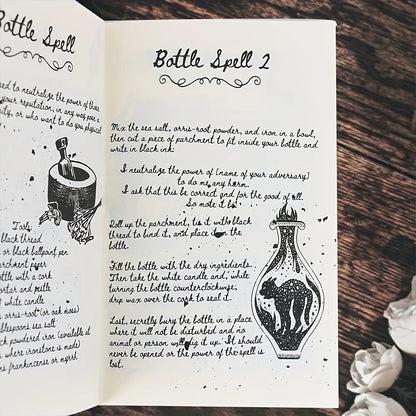 Bottle Spell
sed to neutralize the power of those
your reputation, in any way pose a
ity, or who want to do you physical
Tools:
black thread
or black ballpoint pen
archment paper
bottle with a cork
ortar and pestle
white candle
orris-root (or oak moss)
blespoons sea salt
k powdered iron (available at
where ironstone is made)
frankincense or myrrh
Bottle Spell 2
Mix the sea salt, orris-root powder, and iron in a bowl,
then cut a piece of parchment to fit inside your bottle and
write in black ink:
I neutralize the power of (name of your adversary)
to do me any harm.
I ask that this be correct and for the good of all.
So mote it be.
Roll up the parchment, tie it with black
thread to bind it, and place it in the
bottle.
Fill the bottle with the dry ingredients.
Then take the white candle and, while
turning the bottle counterclockwise,
drip wax over the cork to seal it.
Last, secretly bury the bottle in a place
where it will not be disturbed and no
animal or person will dig it up. It should
never be opened or the power of the spell is
lost.